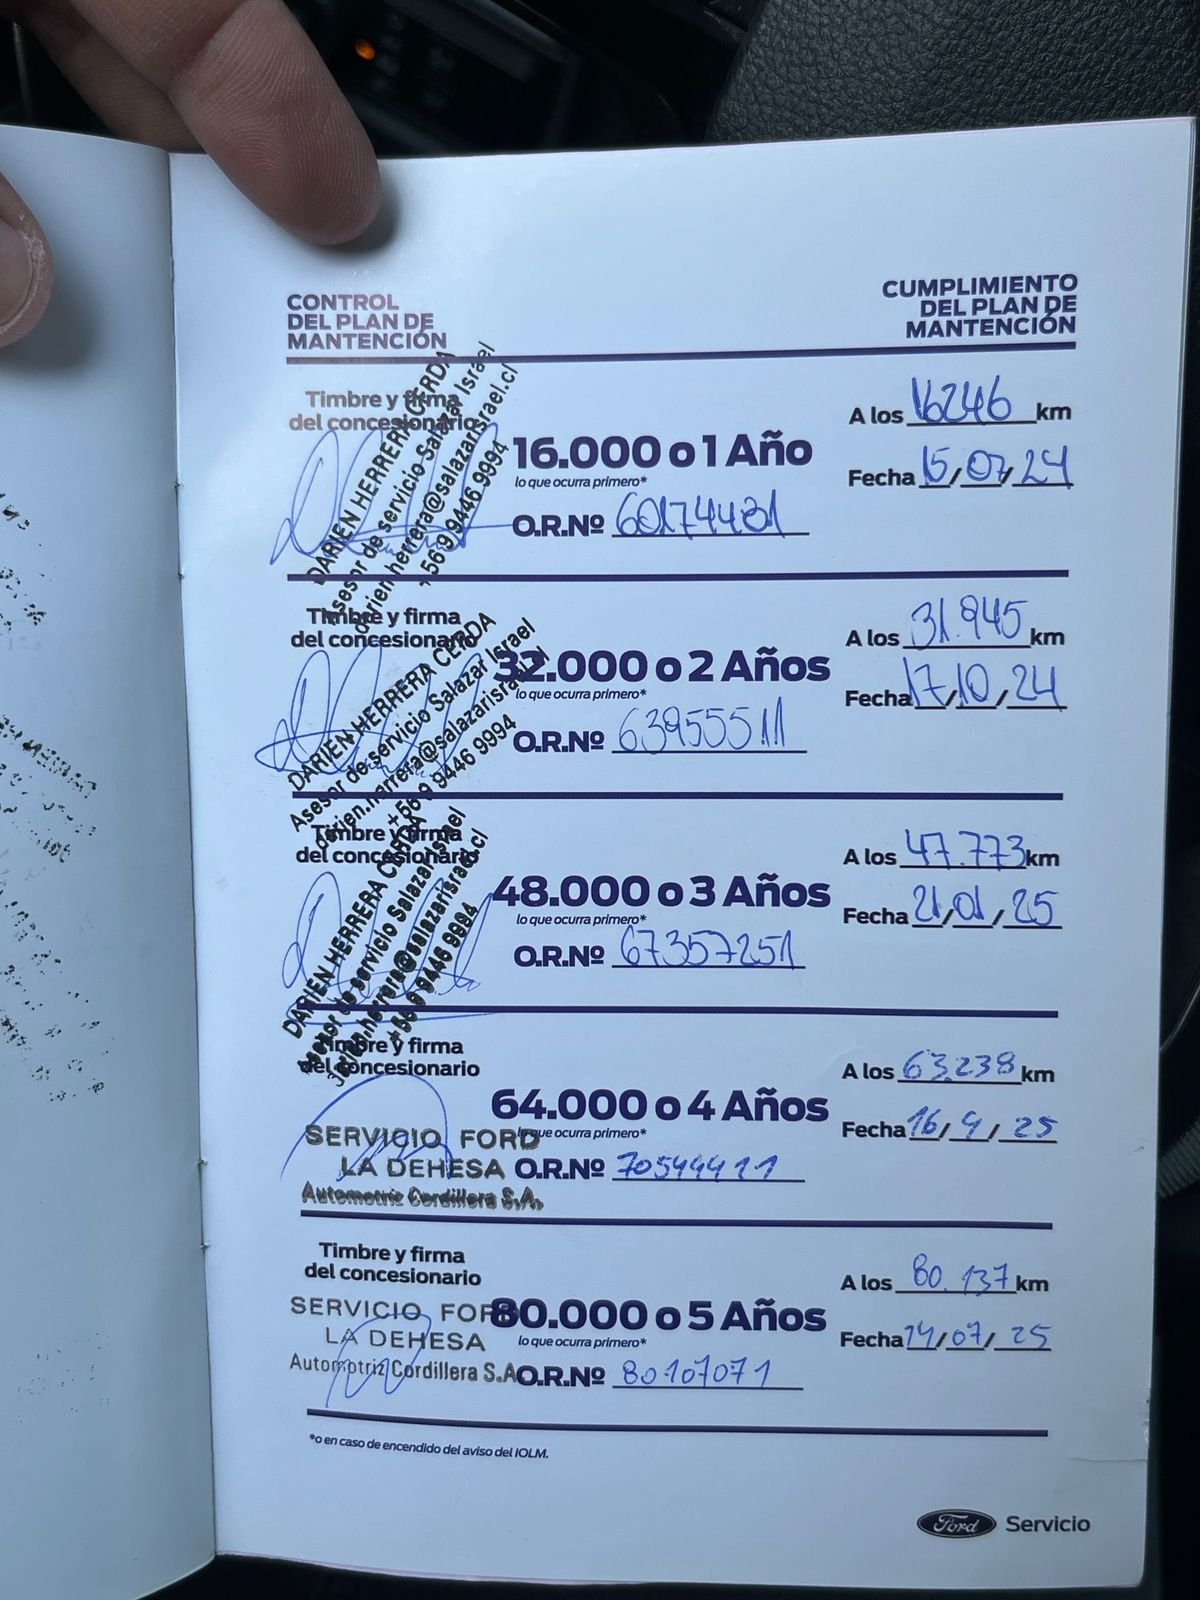 CONTROL
DEL PLAN DE
MANTENCIÓN
CUMPLIMIENTO
DEL PLAN DE
MANTENCIÓN
Timbre y firma
del concesionario
DARIEN HERRERA CERDA
Asesor de servicio Salazar Israel
darien.herrera@salazarisrael.cl
+56 9 9446 9994
16.000 o 1 Año
lo que ocurra primero*
O.R.Nº 60174481
A los 16246 km
Fecha 15/07/24
Timbre y firma
del concesionario
DARIEN HERRERA CERDA
Asesor de servicio Salazar Israel
darien.herrera@salazarisrael.cl
+56 9 9446 9994
32.000 o 2 Años
lo que ocurra primero*
O.R.Nº 63955511
A los 31.945 km
Fecha 17/10/24
Timbre y firma
del concesionario
DARIEN HERRERA CERDA
Asesor de servicio Salazar Israel
darien.herrera@salazarisrael.cl
+56 9 9446 9994
48.000 o 3 Años
lo que ocurra primero*
O.R.Nº 67357251
A los 47.773 km
Fecha 21/01/25
Timbre y firma
del concesionario
SERVICIO FORD
LA DEHESA
Automotriz Cordillera S.A.
64.000 o 4 Años
lo que ocurra primero*
O.R.Nº 70544411
A los 63.238 km
Fecha 16/4/25
Timbre y firma
del concesionario
SERVICIO FORD
LA DEHESA
Automotriz Cordillera S.A.
80.000 o 5 Años
lo que ocurra primero*
O.R.Nº 80107071
A los 80.137 km
Fecha 14/07/25
*o en caso de encendido del aviso del IOLM.
Ford Servicio